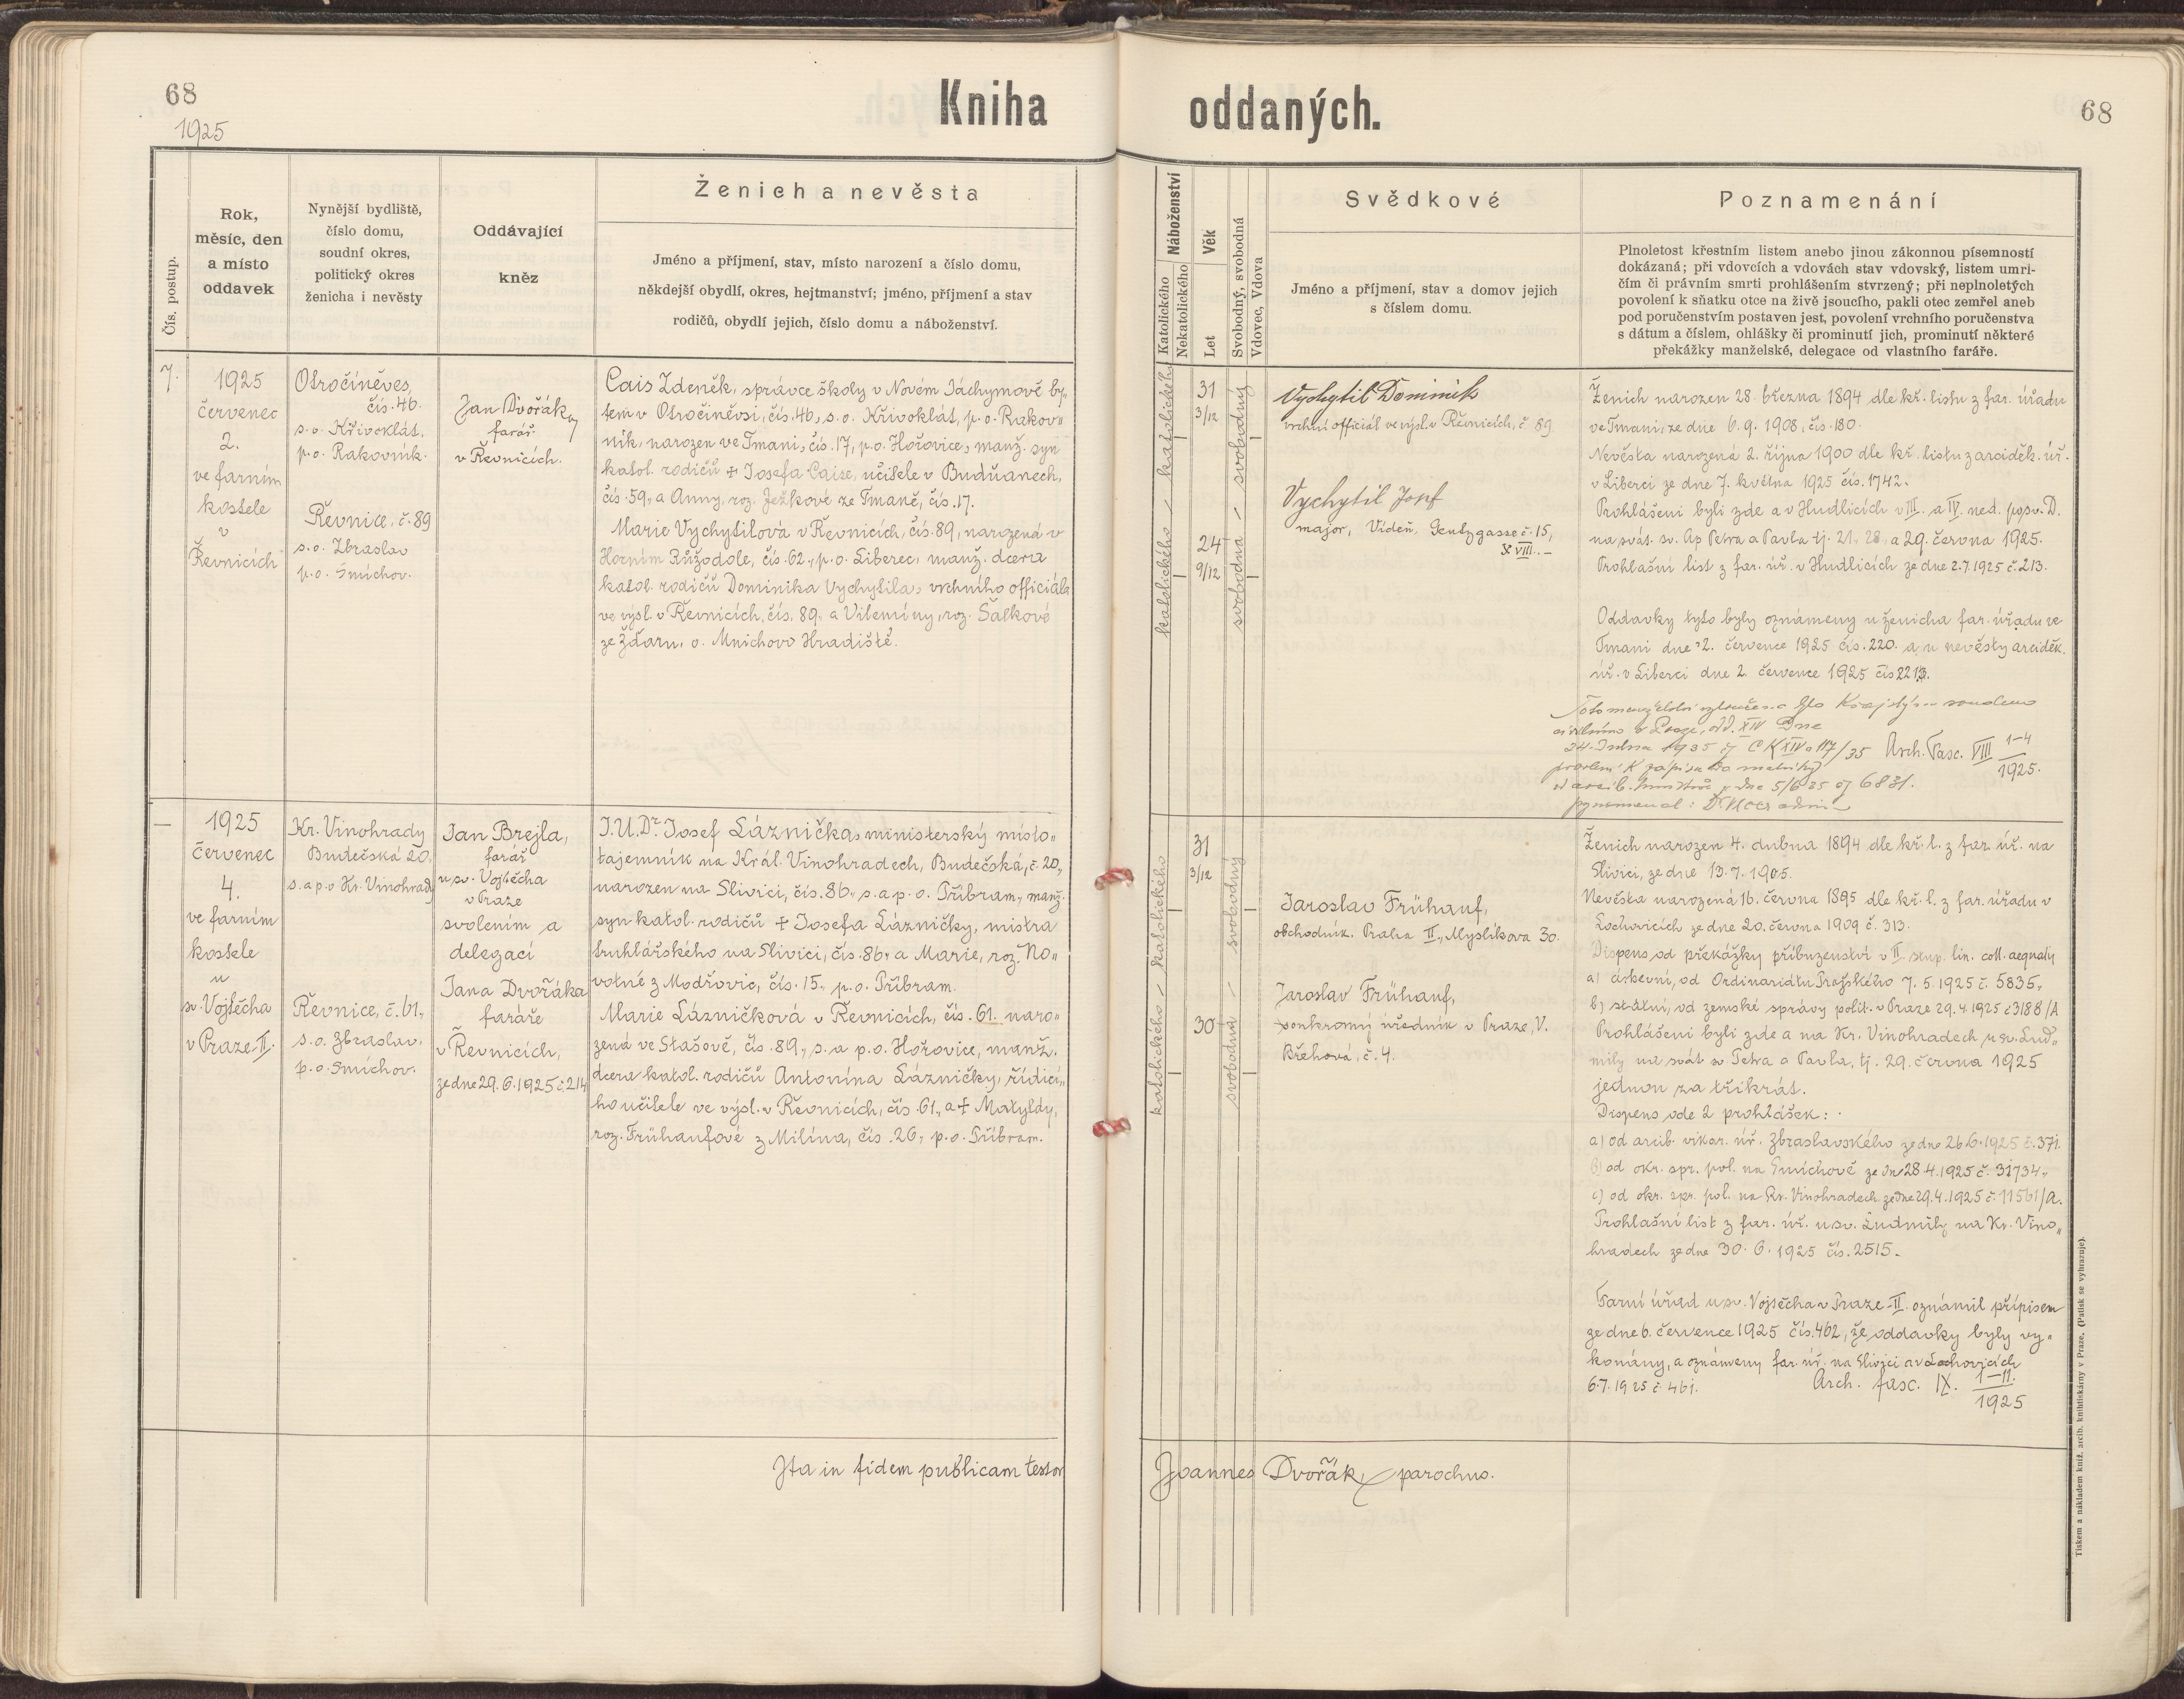 68
1925
Kniha oddaných.
68
Čís. postup.
Rok,
měsíc, den
a místo
oddavek
Nynější bydliště,
číslo domu,
soudní okres,
politický okres
ženicha i nevěsty
Oddávající
kněz
Ženich a nevěsta
Jméno a příjmení, stav, místo narození a číslo domu,
někdejší obydlí, okres, hejtmanství; jméno, příjmení a stav
rodičů, obydlí jejich, číslo domu a náboženství.
Náboženství
Katolického
Nekatolického
Věk
Let
Svobodný, svobodná
Vdovec, Vdova
Svědkové
Jméno a příjmení, stav a domov jejich
s číslem domu.
Poznamenání
Plnoletost křestním listem anebo jinou zákonnou písemností
dokázaná; při vdovcích a vdovách stav vdovský, listem umrl-
čím či právním smrti prohlášením stvrzený; při neplnoletých
povolení k sňatku otce na živě jsoucího, pakli otec zemřel aneb
pod poručenstvím postaven jest, povolení vrchního poručenstva
s dátum a číslem, ohlášky či prominutí jich, prominutí některé
překážky manželské, delegace od vlastního faráře.
7.
1925
červenec
2.
ve farním
kostele
v
Řevnicích
Otročiněves,
čís. 46.
s. o. Křivoklát,
p. o. Rakovník.
Řevnice, č. 89
s. o. Zbraslav
p. o. Smíchov.
Jan Dvořák,
farář
v Řevnicích.
Cais Zdeněk, správce školy v Novém Jáchymově by„
tem v Otročiněvsi, čís. 46., s. o. Křivoklát, p. o. Rakov„
ník, narozen ve Tmani, čís. 17, p. o. Hořovice, manž. syn
katol. rodičů + Josefa Caise, učitele v Budňanech,
čís. 59., a Anny, roz. Ježkové ze Tmaně, čís. 17.
Marie Vychytilová v Řevnicích, čís. 89, narozená v
Horním Růžodole, čís. 62., p. o. Liberec, manž. dcera
katol. rodičů Dominika Vychytila, vrchního officiála
ve výsl. v Řevnicích, čís. 89. a Vilemíny, roz. Šálkové
ze Žďáru, o. Mnichovo Hradiště.
katolického / katolického
31
3/12
24
9/12
svobodná / svobodný
Vychytil Dominik
vrchní officiál ve výsl. v Řevnicích, č 89
Vychytil Josef
major, Vídeň, Gentzgasse č. 15,
XVIII. –
Ženich narozen 28. března 1894 dle kř. listu z far. úřadu
ve Tmani, ze dne 6. 9. 1908, čís. 180.
Nevěsta narozená 2. října 1900 dle kř. listu z arciděk. úř.
v Liberci ze dne 7. května 1925 čís. 1742.
Prohlášeni byli zde a v Hudlicích v III. a IV. ned. po sv. D.
na svát. sv. Ap Petra a Pavla tj. 21., 28., a 29. června 1925.
Prohlašní list z far. úř. v Hudlicích ze dne 2. 7. 1925 č. 213.
Oddavky tyto byly oznámeny u ženicha far. úřadu ve
Tmani dne 2. července 1925 čís. 220. a u nevěsty arciděk.
úř. v Liberci dne 2. července 1925 čís 221.
Toto manželství Krajským soudem
civilním v Praze, odd. XIV dne
24. 1935 čj C K XIV a 117/35
k zápisu do matriky
dne 5/6 35 čj 6831.
Arch. Fasc. VIII 1–4
1925.
–
1925
červenec
4.
ve farním
kostele
u
sv. Vojtěcha
v Praze II.
Kr. Vinohrady
Budečská 20,
s. a p. o Kr. Vinohrady
Řevnice, č. 61.,
s. o. Zbraslav,
p. o. Smíchov.
Jan Brejla,
farář
u sv. Vojtěcha
v Praze
svolením a
delegací
Jana Dvořáka
faráře
v Řevnicích,
ze dne 29. 6. 1925 č 214
J. U. Dr. Josef Láznička, ministerský místo„
tajemník na Král. Vinohradech, Budečská, č. 20.,
narozen na Slivici, čís. 86., s. a p. o. Příbram, manž.
syn katol. rodičů + Josefa Lázničky, mistra
truhlářského na Slivici, čís. 86., a Marie, roz. No„
votné z Modřovic, čís. 15., p. o. Příbram.
Marie Lázničková v Řevnicích, čís. 61. naro„
zená ve Stašově, čís. 89., s. a p. o. Hořovice, manž.
dcera katol. rodičů Antonína Lázničky, řídící„
ho učitele ve výsl. v Řevnicích, čís. 61., a + Matyldy,
roz. Frühaufové z Milína, čís. 26., p. o. Příbram.
katolického / katolického
31
3/12
30
svobodná / svobodný
Jaroslav Frühauf,
obchodník. Praha II., Myslíkova 30.
Jaroslav Frühauf,
soukromý úředník v Praze, V.
Břehová, č. 4.
Ženich narozen 4. dubna 1894 dle kř. l. z far. úř. na
Slivici, ze dne 13. 7. 1905.
Nevěsta narozená 16. června 1895 dle kř. l. z far. úřadu v
Lochovicích ze dne 20. června 1909 č. 313.
Dispens od překážky příbuzenství v II. stup. lin. coll. aequalis
a) církevní, od Ordinariátu Pražského 7. 5. 1925 č. 5835.,
b) státní, od zemské správy polit. v Praze 29. 4. 1925 č 3188/A
Prohlášeni byli zde a na Kr. Vinohradech u sv. Lud„
mily na svát. sv Petra a Pavla, tj. 29. června 1925
jednou za třikrát.
Dispens ode 2 prohlášek:
a) od arcib. vikar. úř. Zbraslavského ze dne 26. 6. 1925 č. 371.
b) od okr. spr. pol. na Smíchově ze dne 28. 4. 1925 č. 31734.,
c) od okr. spr. pol. na Kr. Vinohradech ze dne 29. 4. 1925 č. 11561/A.
Prohlašní list z far. úř. u sv. Ludmily na Kr. Vino„
hradech ze dne 30. 6. 1925 čís. 2515.
Farní úřad u sv. Vojtěcha v Praze–II. oznámil přípisem
ze dne 6. července 1925 čís. 462, že oddavky byly vy„
konány, a oznámeny far. úř. na Slivici a v Lochovicích
6. 7. 1925 č. 461.
Arch. fasc. IX. 1–11.
1925
Ita in fidem publicam testor
Joannes Dvořák, parochus.
Tiskem a nákladem kníž. arcib. knihtiskárny v Praze. (Patisk se vyhrazuje).